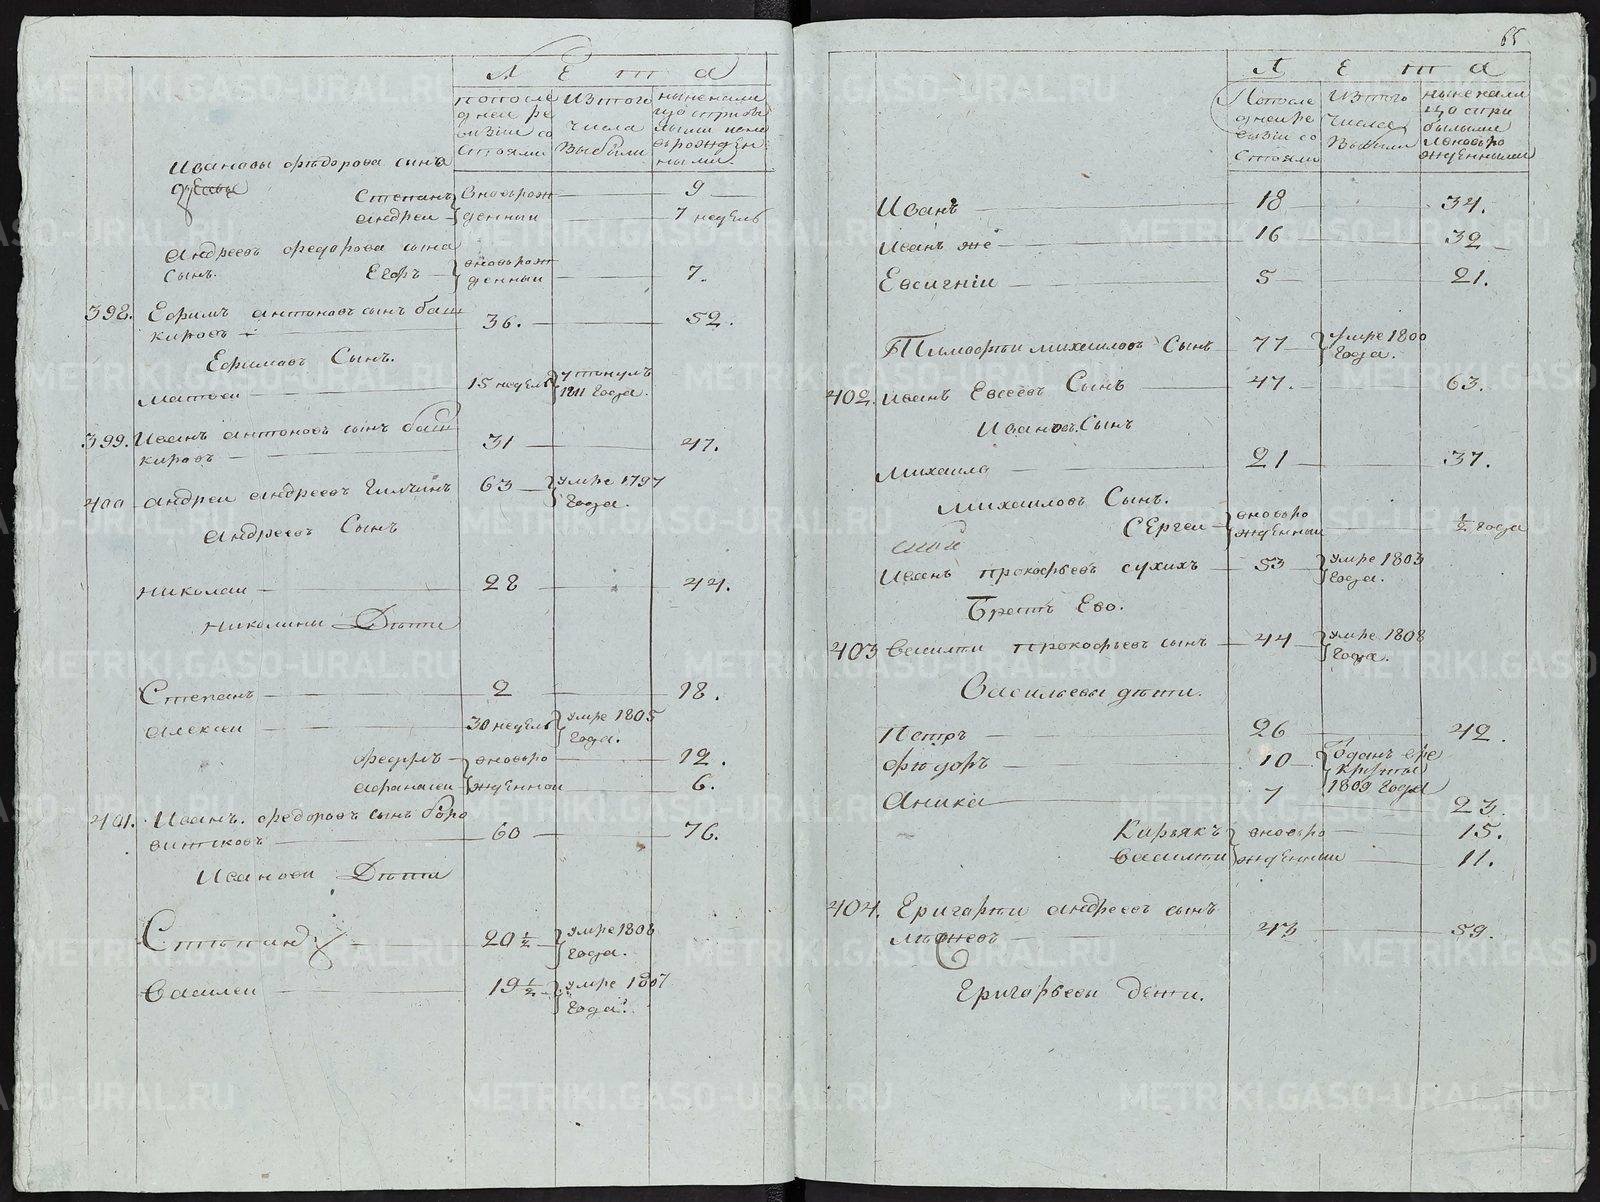 Л Е т а
попосле дней ре визіи со стояли
Изтого числа Выбыли
ныне нали цо
Ивановы фѣдорова сына
Степанъ
андреи
вновьрож денныи
9
7 недель
андреевъ федорова сына
сынъ. Егоръ
вновьрож денныи
7.
398. Ефимъ антоновъ сынъ баш
кировъ
36.
52.
Ефимовъ Сынъ.
Матвеи
15 недель
утонулъ 1811 года.
399. Иванъ антоновъ сынъ баш
кировъ
31
47.
400 андреи андреевъ
63
умре 1797 года.
андреевъ Сынъ
николаи
28
44.
николины Дѣти
Степанъ
2
18.
алексеи
30 недель
умре 1805 года.
федоръ
афанасеи
вновьро жденнои
12.
6.
401. Иванъ. федоровъ сынъ боро
витковъ
60
76.
Ивановы Дѣти
Степанъ
20 1/2
умре 1806 года.
Василеи
19 1/2
умре 1807 года.
65
Л Е т а
Попосле дней ре визіи со стояли
Изтого числа Выбыли
ныне нали цо с при былыми и вновьро жденными
Иванъ
18
34.
Иванъ же
16
32
Евсигнѣи
5
21.
Тимофѣи михаиловъ Сынъ
77
умре 1800 года.
402. Иванъ Евсеевъ Сынъ
47.
63.
Ивановъ Сынъ
михаила
21
37.
михаиловъ Сынъ.
Сергеи
вновьро жденныи
1/2 года
Иванъ прокофьевъ сухихъ
53
умре 1803 года.
Братъ Ево.
403 Василѣи прокофьевъ сынъ
44
умре 1808 года.
Васильевы дѣти.
Петръ
26
42.
фѣдоръ
10
одданъ в ре круты 1809 года
Аника
7
23
Кирьякъ
Василѣи
вновьро жденныи
15.
11.
404. Григорѣи андреевъ сынъ
43
59.
Григорьевы дети.